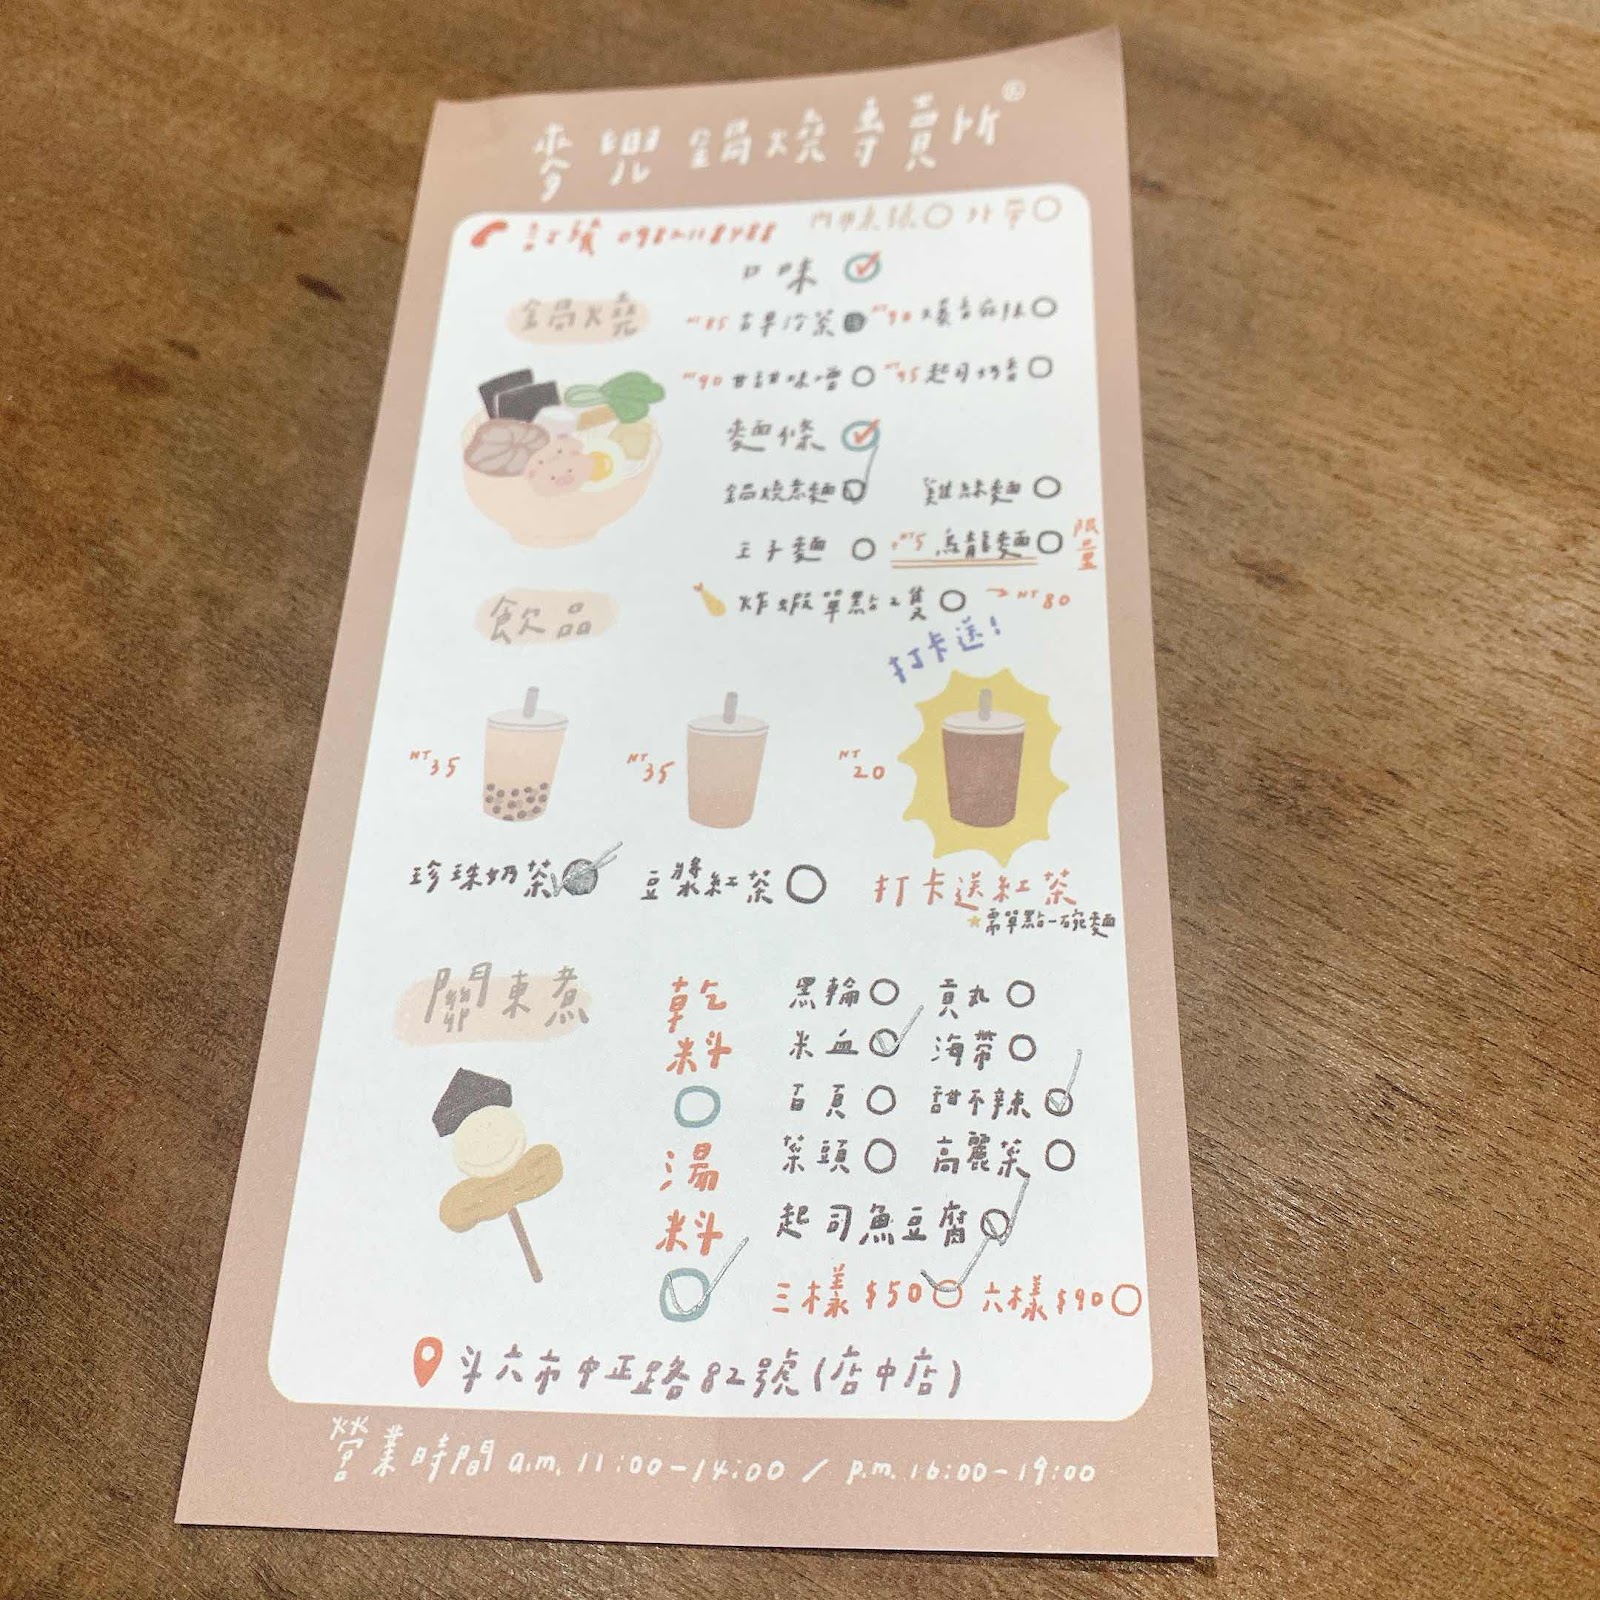 麥兜鍋燒專賣所®
訂餐 0982118488 內用桌號 外帶
口味
鍋燒
NT85 古早沙茶 NT90
NT90 甘甜味噌 NT95 起司奶香
麵條
鍋燒意麵 雞絲麵
王子麵 +NT5 烏龍麵 限量
炸蝦單點2隻 → NT80
飲品
打卡送!
NT35 NT35 NT20
珍珠奶茶 豆漿紅茶 打卡送紅茶
需單點一碗麵
關東煮
乾料
湯料
黑輪 貢丸
米血 海帶
百頁 甜不辣
菜頭 高麗菜
起司魚豆腐
三樣$50 六樣$90
斗六市中正路82號(店中店)
營業時間 a.m. 11:00-14:00 / p.m. 16:00-19:00